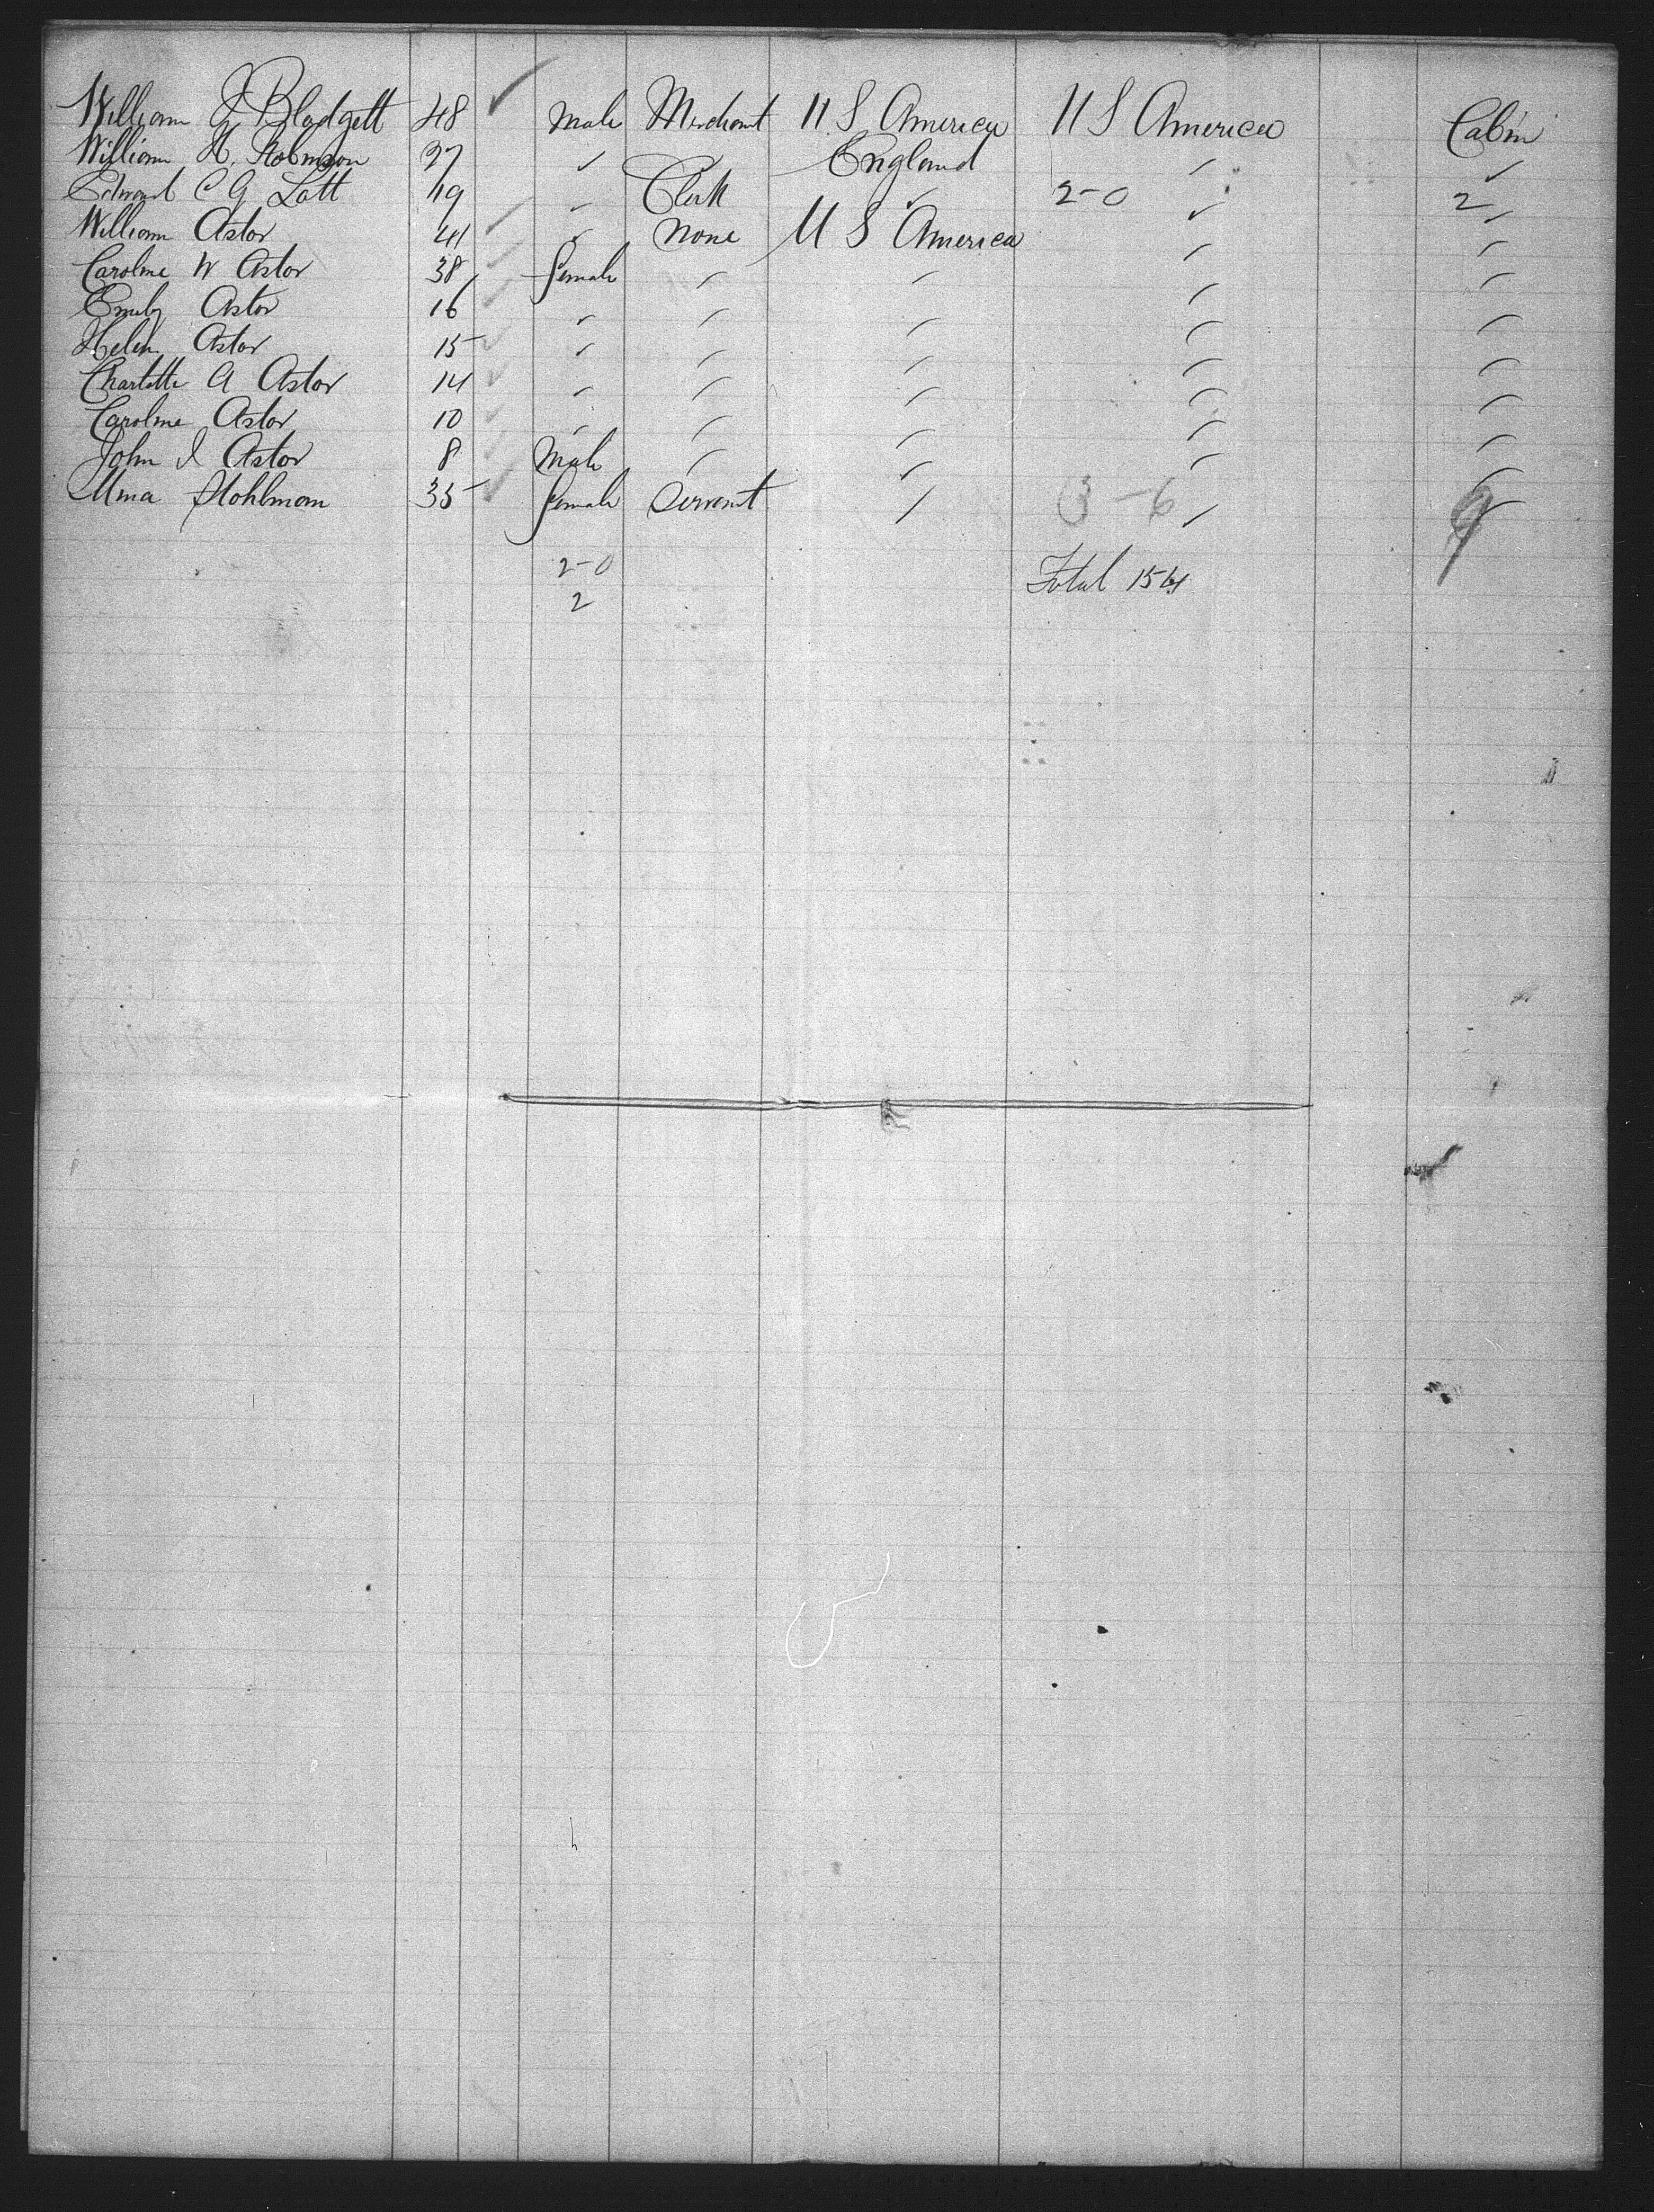 William J Blodgett 48 ✓ Male Merchant U S America U S America Cabin
William H. Robinson 27 ✓ ✓ England ✓ ✓
Edward C G Lott 49 ✓ Clerk ✓ 2-0 ✓ 2 ✓
William Astor 41 ✓ ✓ None U S America ✓ ✓
Caroline W Astor 38 ✓ female ✓ ✓ ✓ ✓
Emily Astor 16 ✓ ✓ ✓ ✓ ✓ ✓
Helen Astor 15 ✓ ✓ ✓ ✓ ✓ ✓
Charlotte A Astor 14 ✓ ✓ ✓ ✓ ✓ ✓
Caroline Astor 10 ✓ ✓ ✓ ✓ ✓ ✓
John J Astor 8 ✓ Male ✓ ✓ ✓ ✓
Mina Stohlmann 35 ✓ female Servant ✓ 3-6 ✓ 9
2-0
2
Total 154